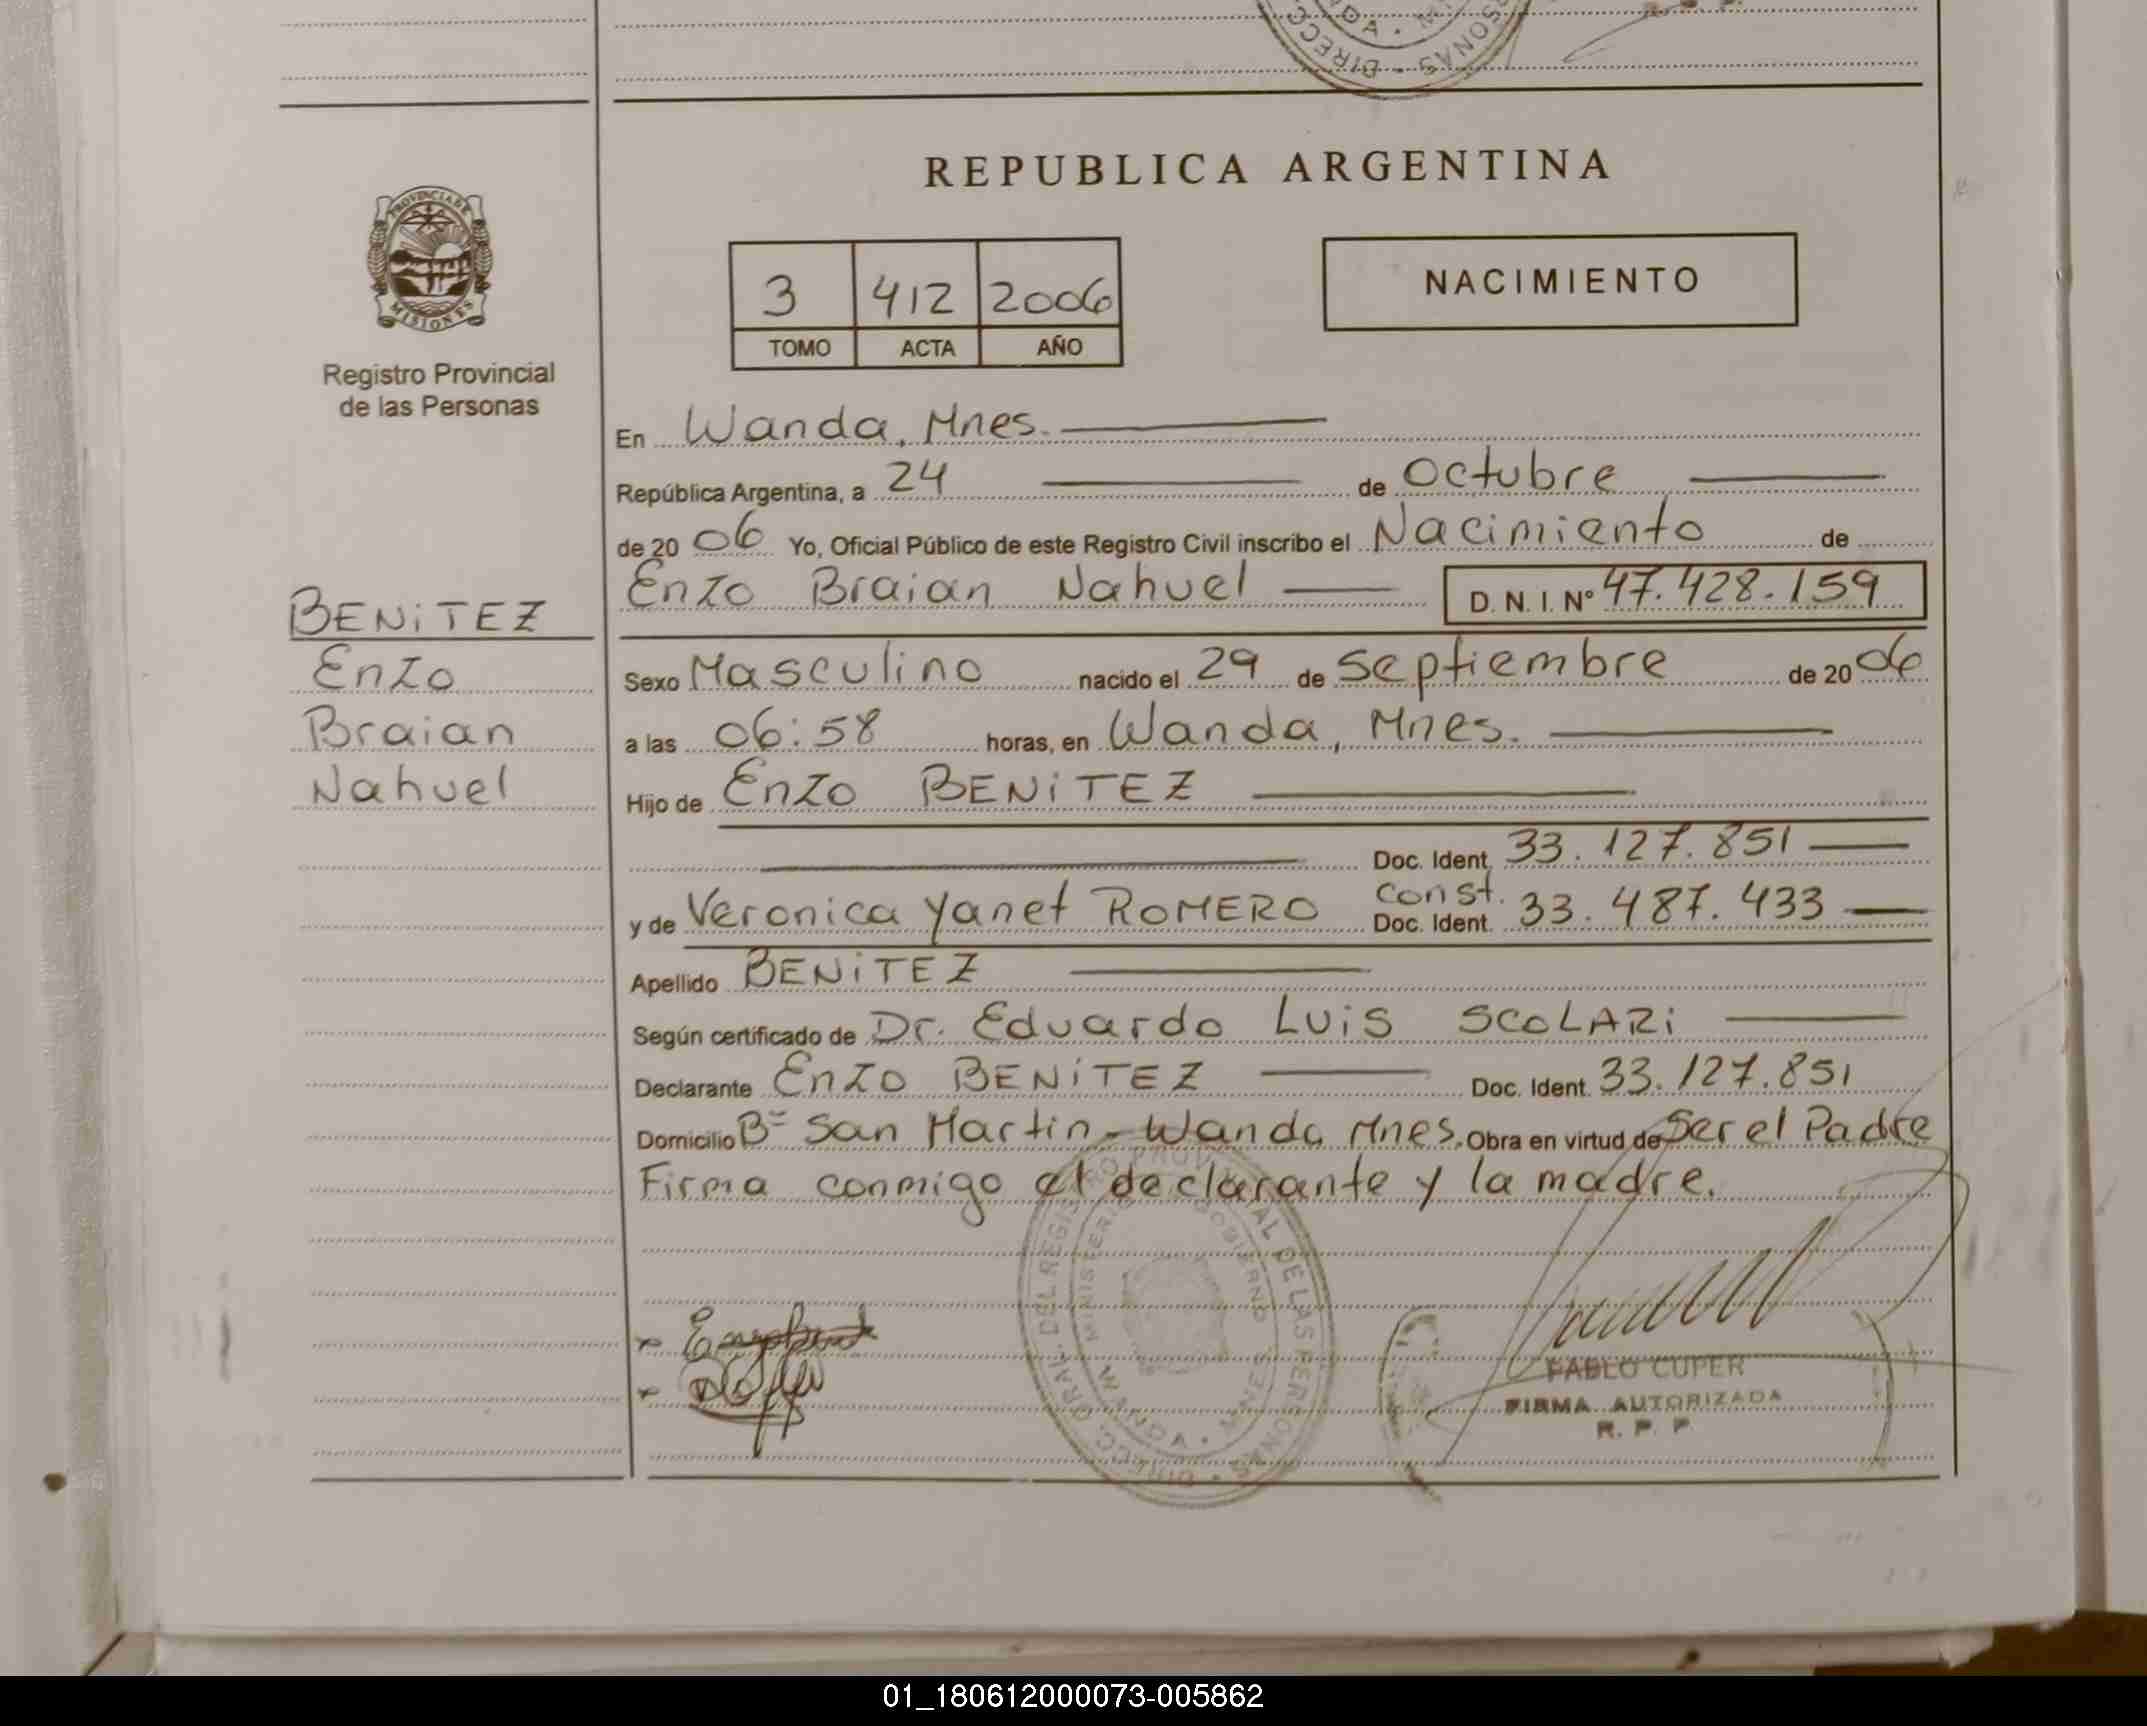 REPUBLICA ARGENTINA
PROVINCIA DE
MISIONES
Registro Provincial
de las Personas
3 412 2006
TOMO ACTA AÑO
NACIMIENTO
En Wanda, Mnes.
República Argentina, a 24 de Octubre
de 20 06 Yo, Oficial Público de este Registro Civil inscribo el Nacimiento de
Enzo Braian Nahuel D. N. I. Nº 47.428.159
BENiTEZ
Enzo
Braian
Nahuel
Sexo Masculino nacido el 29 de Septiembre de 20 06
a las 06:58 horas, en Wanda, Mnes.
Hijo de Enzo BENiTEZ
Doc. Ident. 33.127.851
y de Veronica Yanet ROMERO const. Doc. Ident. 33.487.433
Apellido BENiTEZ
Según certificado de Dr. Eduardo Luis SCOLARi
Declarante Enzo BENiTEZ Doc. Ident. 33.127.851
Domicilio Bº San Martin - Wanda Mnes. Obra en virtud de Ser el Padre
Firma conmigo el declarante y la madre.
DIRECC. GRAL. DEL REGISTRO PROVINCIAL DE LAS PERSONAS
MINISTERIO GOBIERNO
WANDA - MNES
PABLO CUPER
FIRMA AUTORIZADA
R. P. P
01_180612000073-005862